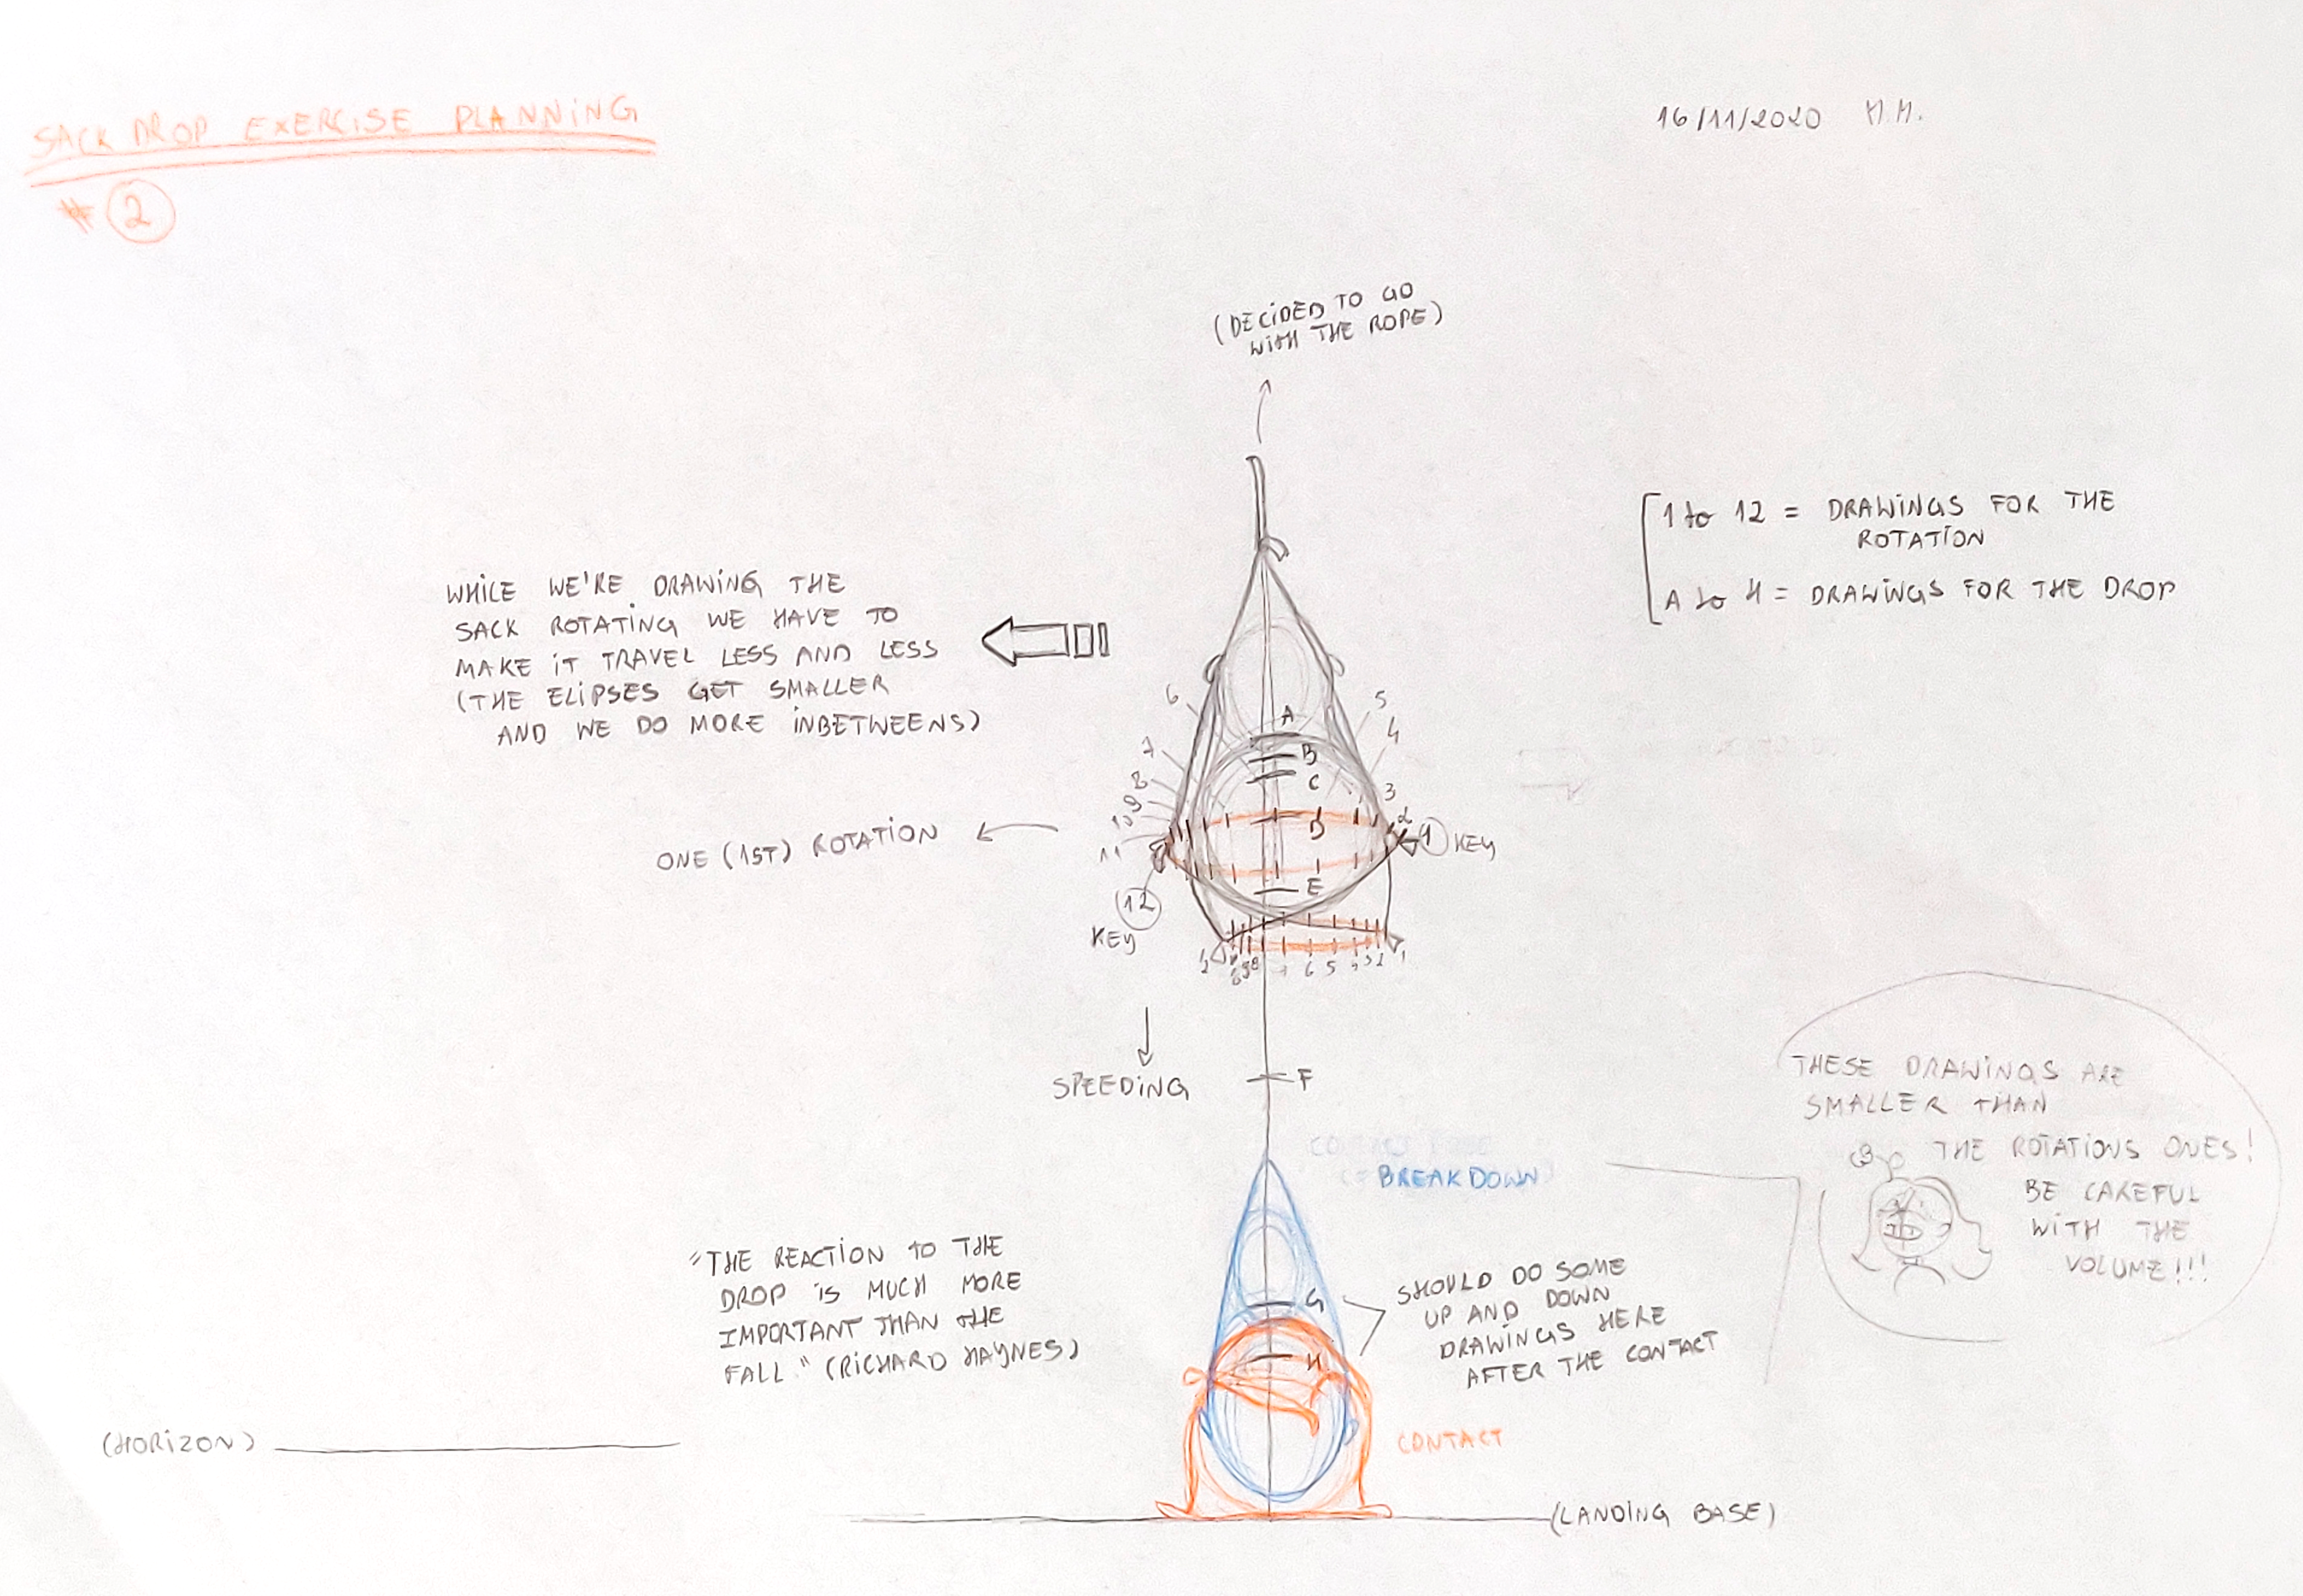 SACK DROP EXERCISE PLANNING
# 2
16/11/2020 M.M.
(DECIDED TO GO
WITH THE ROPE)
1 to 12 = DRAWINGS FOR THE
ROTATION
A to H = DRAWINGS FOR THE DROP
WHILE WE'RE DRAWING THE
SACK ROTATING WE HAVE TO
MAKE IT TRAVEL LESS AND LESS
(THE ELIPSES GET SMALLER
AND WE DO MORE INBETWEENS)
6
5
4
7
8
9
10
11
3
2
1 KEY
A
B
C
D
E
ONE (1ST) ROTATION
12
KEY
6 5
1
SPEEDING
F
BREAKDOWN
THESE DRAWINGS ARE
SMALLER THAN
THE ROTATIONS ONES!
BE CAREFUL
WITH THE
VOLUME!!!
"THE REACTION TO THE
DROP IS MUCH MORE
IMPORTANT THAN THE
FALL" (RICHARD HAYNES)
G
H
SHOULD DO SOME
UP AND DOWN
DRAWINGS HERE
AFTER THE CONTACT
CONTACT
(HORIZON)
(LANDING BASE)